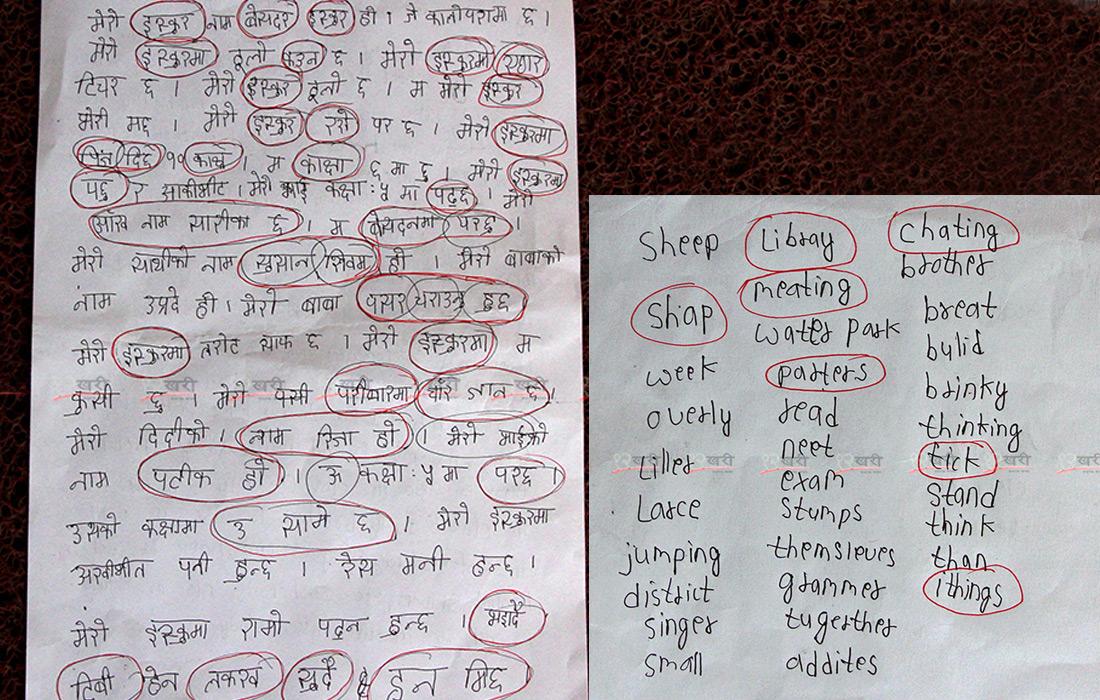 मेरो इस्कुर नाम बेसदर इस्कुर हो । जे कालोपरामा छ ।
मेरो इस्कुरमा ठूलो कउन छ । मेरो इस्कुरमा एघार
टिचर छ । मेरो इस्कुर ठूलो छ । म मेरो इस्कुर
मेरो मद्द । मेरो इस्कुर रसे पर छ । मेरो इस्कुरमा
दिदि १० काक्षे । म काक्षा ६ मा छु । मेरो इस्कुरमा
पछु र साकीभीट । मेरो भाई कक्षा : ५ मा पढ्छ । मेरो
आँख नाम सारीका छ । म बेसदनमा परछु ।
मेरो साथीको नाम सुसान सिवम हो । मेरो बाबाको
नाम उप्रदे हो । मेरो बाबा पसर चराउनु हुछ
मेरो इस्कुरमा तरोट साफ छ । मेरो इस्कुरमा म
कुसी छु । मेरो पसी परीवारमा चार जान छ ।
मेरो दिदीको । नाम रिजा हो । मेरो भाईको
नाम पतीक हो । ऊ कक्षा : ५ मा परछ ।
उसको कक्षामा उ सामे छ । मेरो इस्कुरमा
अरबीभीत पनी हुन्छ । रेस मनी हुन्छ ।
मेरो इस्कुमा रामो पढ्न हुन्छ । भइदै
टिबी हेन तकरखे सुदै हुन मिछ
Sheep
Shap
week
overly
Liller
Larce
jumping
district
singer
small
Libray
meating
water park
parters
read
neet
exam
Stumps
themsleves
grammer
tugerther
addites
chating
brother
breat
bulid
brinky
thinking
tick
stand
think
than
ithings
खरी खरी खरी खरी
खरी खरी खरी खरी